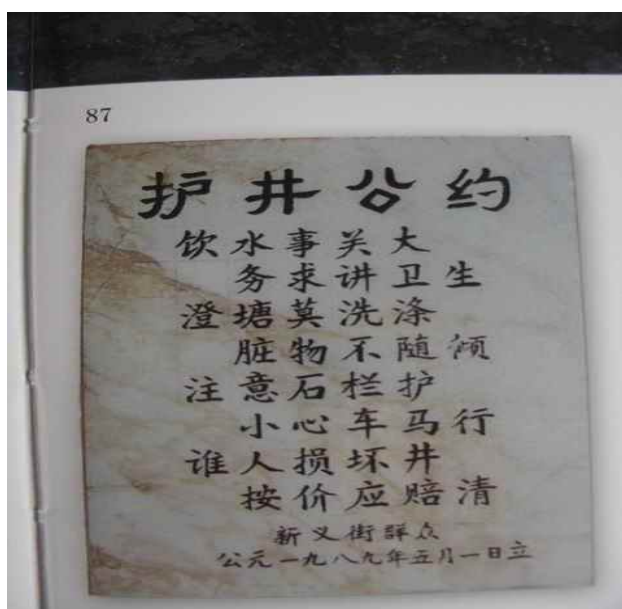 87
护井公约
饮水事关大
务求讲卫生
澄塘莫洗涤
脏物不随倾
注意石栏护
小心车马行
谁人损坏井
按价应赔清
新义街群众
公元一九八九年五月一日立